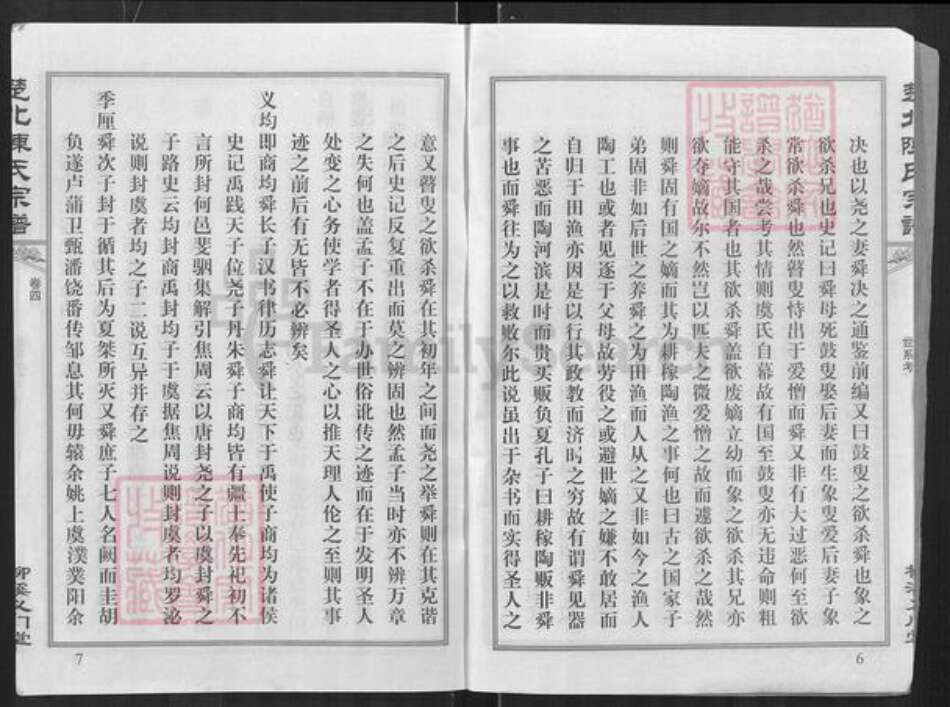 决也以尧之妻舜决之通鉴前编又曰鼓叟之欲杀舜也象之
欲杀兄也史记曰舜母死鼓叟娶后妻而生象叟爱后妻子象
常欲杀舜也然瞽叟恃出于爱憎而舜又非有大过恶何至欲
杀之哉尝考其情则虞氏自幕故有国至鼓叟亦无违命则粗
能守其国者也其欲杀舜盖欲废嫡立幼而象之欲杀其兄亦
欲夺嫡故尔不然岂以匹夫之微爱憎之故而遽欲杀之哉然
则舜固有国之嫡而其为耕稼陶渔之事何也曰古之国家子
弟固非如后世之养舜之为田渔而人从之又非如今之渔人
陶工也或者见逐于父母故劳役之或避世嫡之嫌不敢居而
自归于田渔亦因是以行其政教而济时之穷故有谓舜见器
之苦恶而陶河滨是时而贵买贩负夏孔子曰耕稼陶贩非舜
事也而舜往为之以救败尔此说虽出于杂书而实得圣人之
6
楚北陳氏宗譜
世系考
意又瞽叟之欲杀舜在其初年之间而尧之举舜则在其克谐
之后史记反复重出而莫之辨固也然孟子当时亦不辨万章
之失何也盖孟子不在于办世俗讹传之迹而在于发明圣人
处变之心务使学者得圣人之心以推天理人伦之至则其事
迹之前后有无皆不必辨矣
义均即商均舜长子汉书律历志舜让天下于禹使子商均为诸侯
史记禹践天子位尧子丹朱舜子商均皆有疆土奉先祀初不
言所封何邑斐骃集解引焦周云以唐封尧之子以虞封舜之
子路史云均封商禹封均子于虞据焦周说则封虞者均罗泌
说则封虞者均之子二说互异并存之
季厘舜次子封于循其后为夏桀所灭又舜庶子七人名阙而圭胡
负遂卢蒲卫甄潘饶番传邹息其何毋辕余姚上虞濮蒉阳余
7
楚北陳氏宗譜
卷四
柳溪义门堂